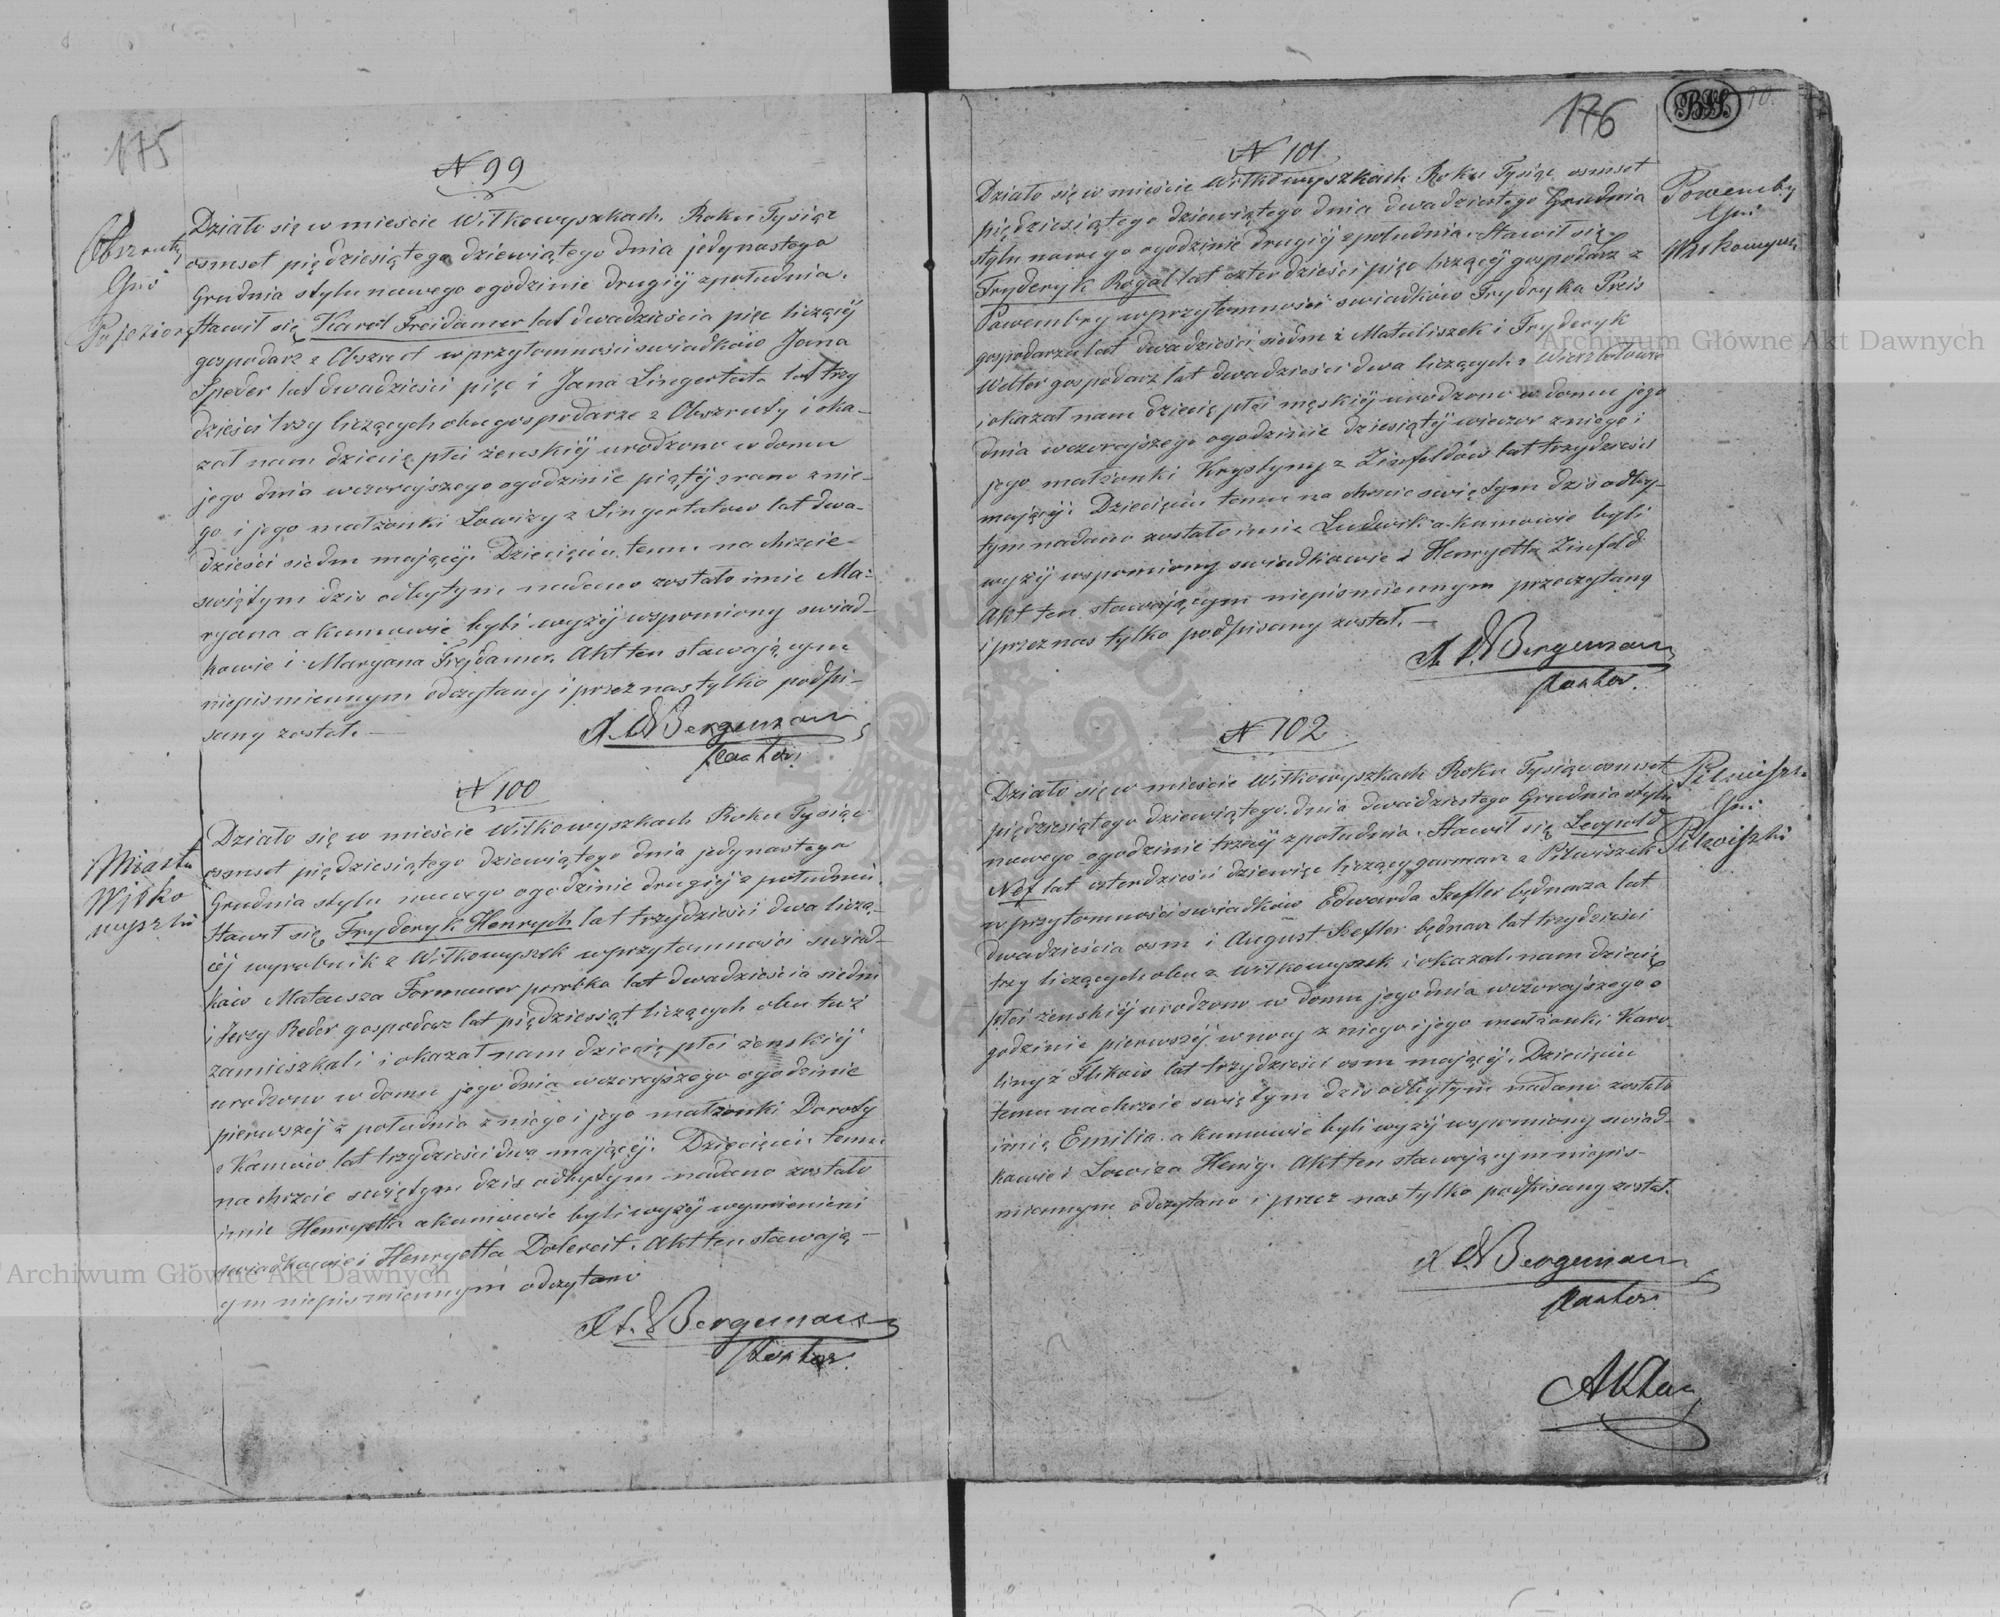 175
N 99
Obszruty
Gmi
Działo się w mieście Wiłkowyszkach. Roku Tysiąc
osmset pięćdziesiątego dziewiątego dnia jedynastego
Grudnia stylu nowego ogodzinie drugiéj zpołudnia.
Stawił się Karol Freidamer lat dwadzieścia pięc liczącéj
gospodarz z Obszrut w przytomności swiadków Jana
Speder lat dwadzieści pięc i Jana Lingertata lat trzy
dzieści trzy liczących obu gospodarze z Obszruty i oka-
zał nam dziecię płci żenskiéj urodzono w domu
jego dnia wczorajszego ogodzinie piątéj zrana znie-
go i jego małżonki Lowizy z Lingertatow lat dwa-
dzieści siedm mającéj. Dziecięciu temu na chrzcie
swiętym dzis odbytym nadano zostało imie Ma-
ryana a kumowie byli wyżéj wspomiony swiad-
kowie i Maryana Frejdamer. Akt ten stawającym
niepismiennym odczytany i przez nas tylko podpi-
sany został. —
Bergemann
Pastor.
N 100
Miasta
Wiłko
wyszki
Działo się w mieście Wiłkowyszkach Roku Tysiąc
osmset pięćdziesiątego dziewiątego dnia jedynastego
Grudnia stylu nowego ogodzinie drugiéj z południa.
Stawił się Fryderyk Henrych lat trzydzieści dwa liczą-
céj wyrobnik z Wiłkowyszk w przytomności swiad-
ków Mateusza Formaner parobka lat dwadzieścia siedm
i Jerzy Reder gospodarz lat pięćdziesiąt liczących obu tuż
zamieszkali i okazał nam dziecię płci żenskiéj
urodzono w domu jego dnia wczorajszego ogodzinie
pierwszéj z południa z niego i jego małżonki Doroty
z Kamów lat trzydzieści dwa mającéj. Dzięcięciu temu
na chrzcie swiętym dzis odbytym nadano zostało
imie Henryetta a kumowie byli wyżéj wymienieni
swiadkowie i Henryetta Dolereit. Akt ten stawają-
cym niepismiennym odczytano
Bergemann
Pastor.
176
BJS.
90.
N 101
Powemby
Gmi
Wiłkowyszki
Działo się w mieście Wiłkowyszkach Roku Tysiąc osmset
pięćdziesiątego dziewiątego dnia dwadziestego Grudnia
stylu nowego ogodzinie drugiéj zpołudnia. Stawił się
Fryderyk Rogal lat czterdzieści pięc liczącéj gospodarz z
Powembry w przytomności swiadków Frydryka Preis
gospodarza lat dwadzieści siedm z Matuliszek i Fryderyk
Welter gospodarz lat dwadzieści dwa liczących z Wierzbołowo
i okazał nam dziecię płci męskiéj urodzono w domu jego
dnia wczorajszego ogodzinie dziesiątéj wieczor z niego i
jego małżonki Krystyny z Zinfeldów lat trzydzieści
mającéj. Dziecięciu temu na chrzcie swiętym dzis odby-
tym nadano zostało imie Ludwik a kumowie byli
wyżéj wspomiony swiadkowie i Henryetta Zinfeld
Akt ten stawającym niepismiennym przeczytany
i przez nas tylko podpisany został. —
Bergemann
Pastor.
N 102
Pilwiszki
Gmi
Pilwiszki
Działo się w mieście Wiłkowyszkach Roku Tysiąc osmset
pięćdziesiątego dziewiątego dnia dwadziestego Grudnia stylu
nowego ogodzinie trzeciéj zpołudnia. Stawił się Leopold
Nef lat czterdzieści dziewięc liczący garmarz z Pilwiszek
w przytomności swiadków Edwarda Szefler będnarza lat
dwadzieścia osm i August Szefler będnarz lat trzydzieści
trzy liczących obu z Wiłkowyszek i okazał nam dziecię
płci żenskiéj urodzono w domu jego dnia wczorajszego o
godzinie pierwszéj w nocy z niego i jego małżonki Karo-
liny z Flików lat trzydzieści osm mającéj. Dziecięciu
temu na chrzcie swiętym dzis odbytym nadano zostało
imię Emilia. a kumowie byli wyżéj wspomiony swiad-
kowie i Lowiza Henig. Akt ten stawającym niepis-
miennym odczytano i przez nas tylko podpisany został.
Bergemann
Pastor.
Archiwum Główne Akt Dawnych
Archiwum Główne Akt Dawnych